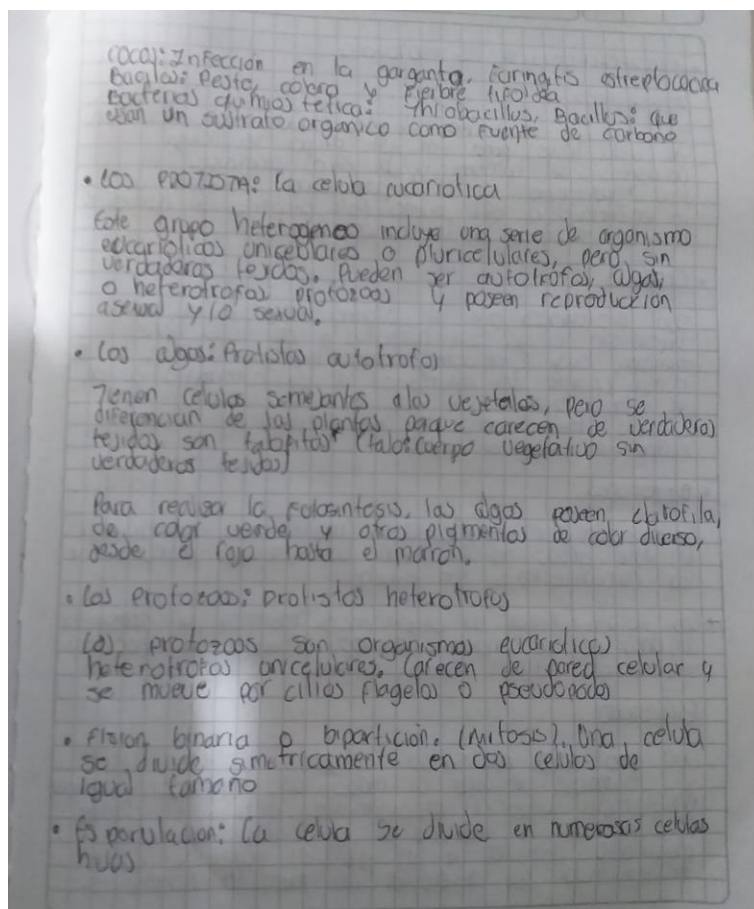 cocos: Infección en la garganta, faringitis estreptococica
Bacilos: Peste, colera y Fierbre tifoidea
bacterias quimiosteticas: Thiobacillus, Bacillus: que
usan un sustrato organico como fuente de carbono
• LOS PROTISTA: la celula eucariotica
Este grupo heterogeneo incluye una serie de organismo
eucarioticos unicelulares o pluricelulares, pero sin
verdaderos tejidos. Pueden ser autotrofos, algas,
o heterotrofos protozoos y poseen reproducción
asexual y/o sexual.
• Los algas: Protistas autotrofos
Tienen celulas semejantes a los vegetales, pero se
diferencian de las plantas porque carecen de verdaderos
tejidos son talofitas (talo: cuerpo vegetativo sin
verdaderos tejidos)
Para realizar la fotosintesis, las algas poseen clorofila,
de color verde y otros pigmentos de color diverso,
desde el rojo hasta el marron.
• Los Protozoos: protistas heterotrofos
Los protozoos son organismos eucarioticos
heterotrofos unicelulares. Carecen de pared celular y
se mueve por cilios flagelos o pseudopodos
• Fision binaria o biparticion. (mitosis). Una celula
se divide simetricamente en dos celulas de
igual tamaño
• Esporulacion: La celula se divide en numerosas celulas
hijas